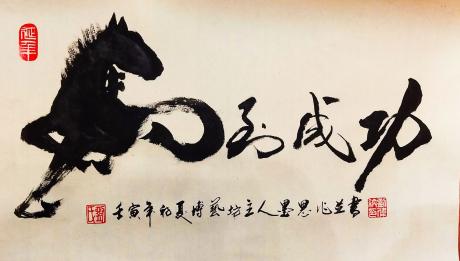 延年
马到成功
壬寅年初夏博藝坊主人墨思作並書